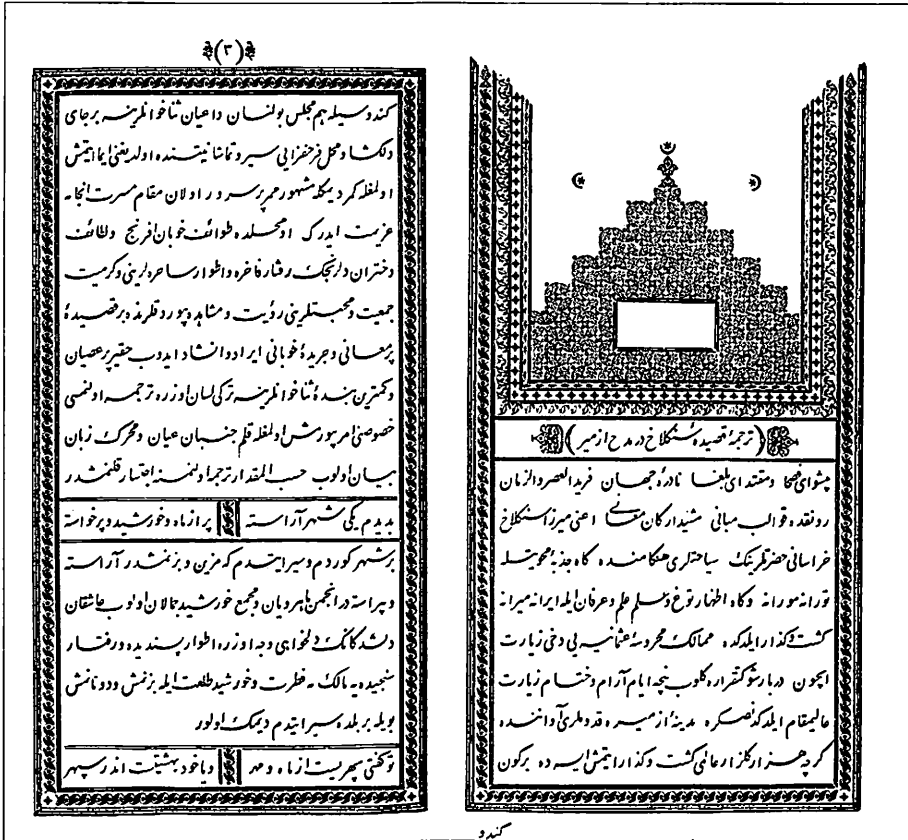 (ترجمهٔ قصیدهٔ سنکلاخ در مدح ازمیر)
پیشوای فصحا ومقتدای بلغا نادرهٔ جهان فرید العصر والزمان
رونقده قوالب مبانی مشید ارکان معانی اعنی میرزا سنکلاخ
خراسانی حضرتلرینک سیاحتلری هنکامنده کاه جذبهٔ محویتله
تورانه مورانه وکاه اظهار توغ وسلم علم وعرفان ایله ایرانه میرانه
کشت وکذار ایلدکده ممالک محروسهٔ عثمانیه یی دخی زیارت
ایچون دربار شوکتقراره کلوب نیچه ایام آرام وختام زیارت
عالیمقام ایلدکدنصکره مدینهٔ ازمیره قدوملری آواننده
کرچه هزار کلزار عالمی کشت وکذار ایتمش ایسه ده برکون
کندو
(٣)
کندوسیله هم مجلس بولنان داعیان ثناخوانلرینه برجای
دلکشا ومحل فرحفزایی سیر وتماشا نیتنده اولدیغنی ایما ایتمش
اولمغله کمر دیمکله مشهور ممر پرسرور اولان مقام مسرت انجامه
عزیمت ایدرک اومحلده طوائف خوبان افرنج ولطائف
دختران دلرنجک رفتار فاخره واطوار ساحره لرینی وکرمیت
جمعیت ومحبتلرینی رؤیت ومشاهده بیوردقلرنده برقصیدهٔ
پرمعانی وجریدهٔ خوبانی ایراد وانشاد ایدوب حقیر پرعصیان
وکمترین بندهٔ ثناخوانلرینه ترکی لسان اوزره ترجمه اولنمسی
خصوصنی امر بیورمش اولمغله قلم جنبان عیان ومحرک زبان
بیان اولوب حسب المقدار ترجمه اولنمسنه ابتدار قلنمشدر
بدیدم یکی شهر آراسته پر از ماه وخورشید وپرخواسته
برشهر کوردم وسیر ایتدم که مزین وبزنمشدر آراسته
وپیراسته در انجمن ماهرویان ومجمع خورشید جمالان اولوب عاشقان
دلشدکانک دلخواهی وجه اوزره اطوار پسندیده ورفتار
سنجیده یه مالک مه فطرت وخورشید طلعت ایله بزنمش ودونانمش
بویله بربلده سیر ایتدم دیمک اولور
توکفتی سپهریست از ماه ومهر ویاخود بهشتیست اندر سپهر